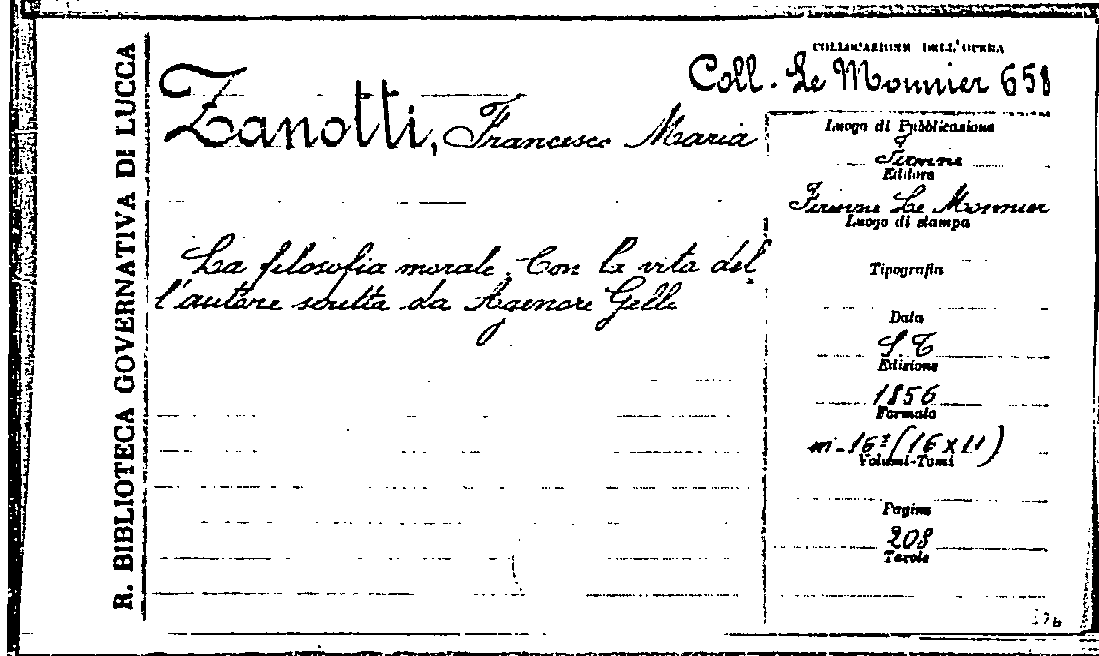 R. BIBLIOTECA GOVERNATIVA DI LUCCA
COLLOCAZIONE DELL'OPERA
Coll. Le Monnier 658
Zanotti, Francesco Maria
La filosofia morale. Con la vita del
l'autore scritta da Agenore Gelli
Luogo di Pubblicazione
Firenze
Editore
Firenze Le Monnier
Luogo di stampa
Tipografia
Data
S. T.
Edizione
1856
Formato
in-16º (16 x 11)
Volumi-Tomi
Pagine
208
Tavole